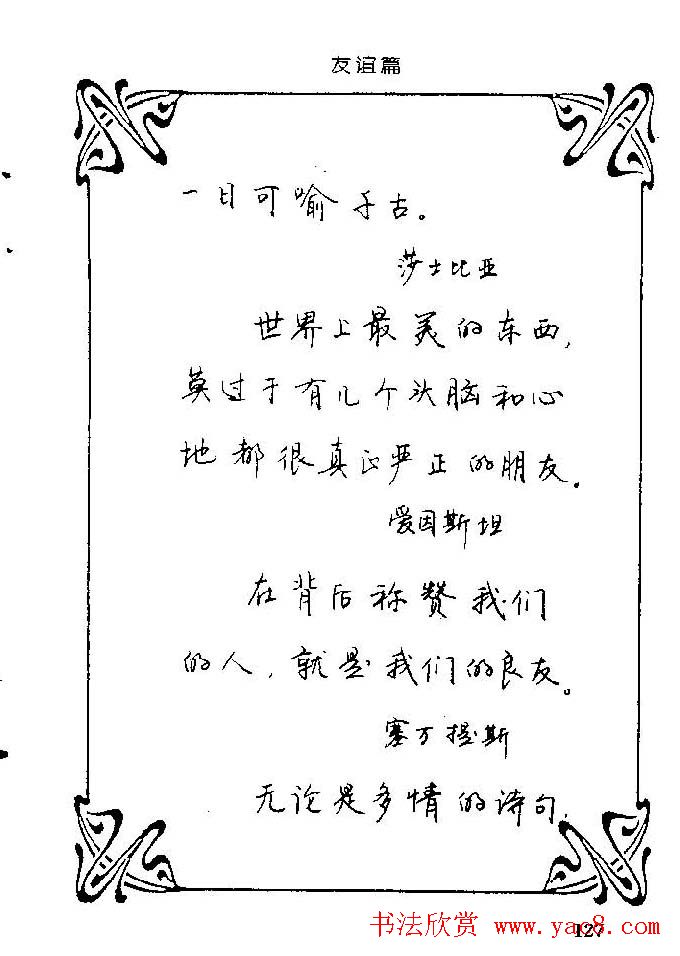 友谊篇
一日可喻千古。
莎士比亚
世界上最美的东西,
莫过于有几个头脑和心
地都很真正严正的朋友.
爱因斯坦
在背后称赞我们
的人,就是我们的良友。
塞万提斯
无论是多情的诗句,
书法欣赏 www.yac8.com
127